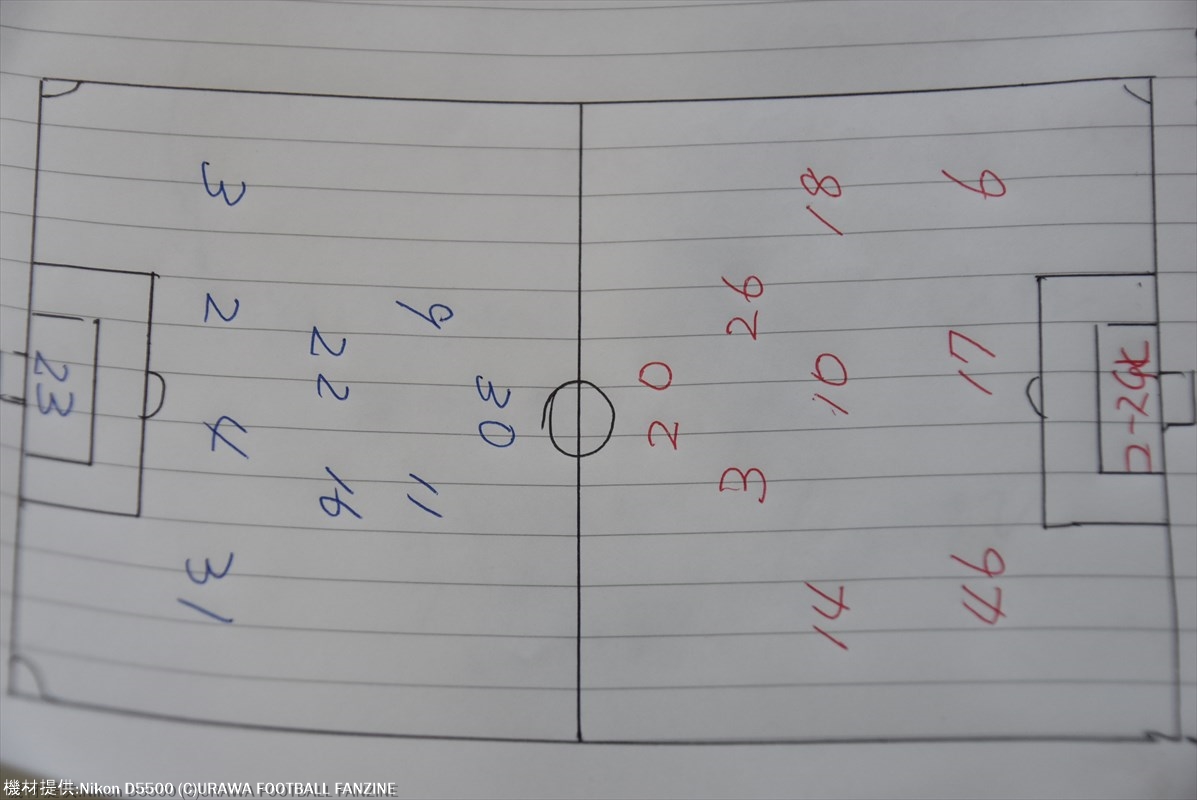 23
3
2
4
31
22
16
9
11
30
20
26
3
18
10
14
6
17
46
GK
機材提供:Nikon D5500 (C)URAWA FOOTBALL FANZINE